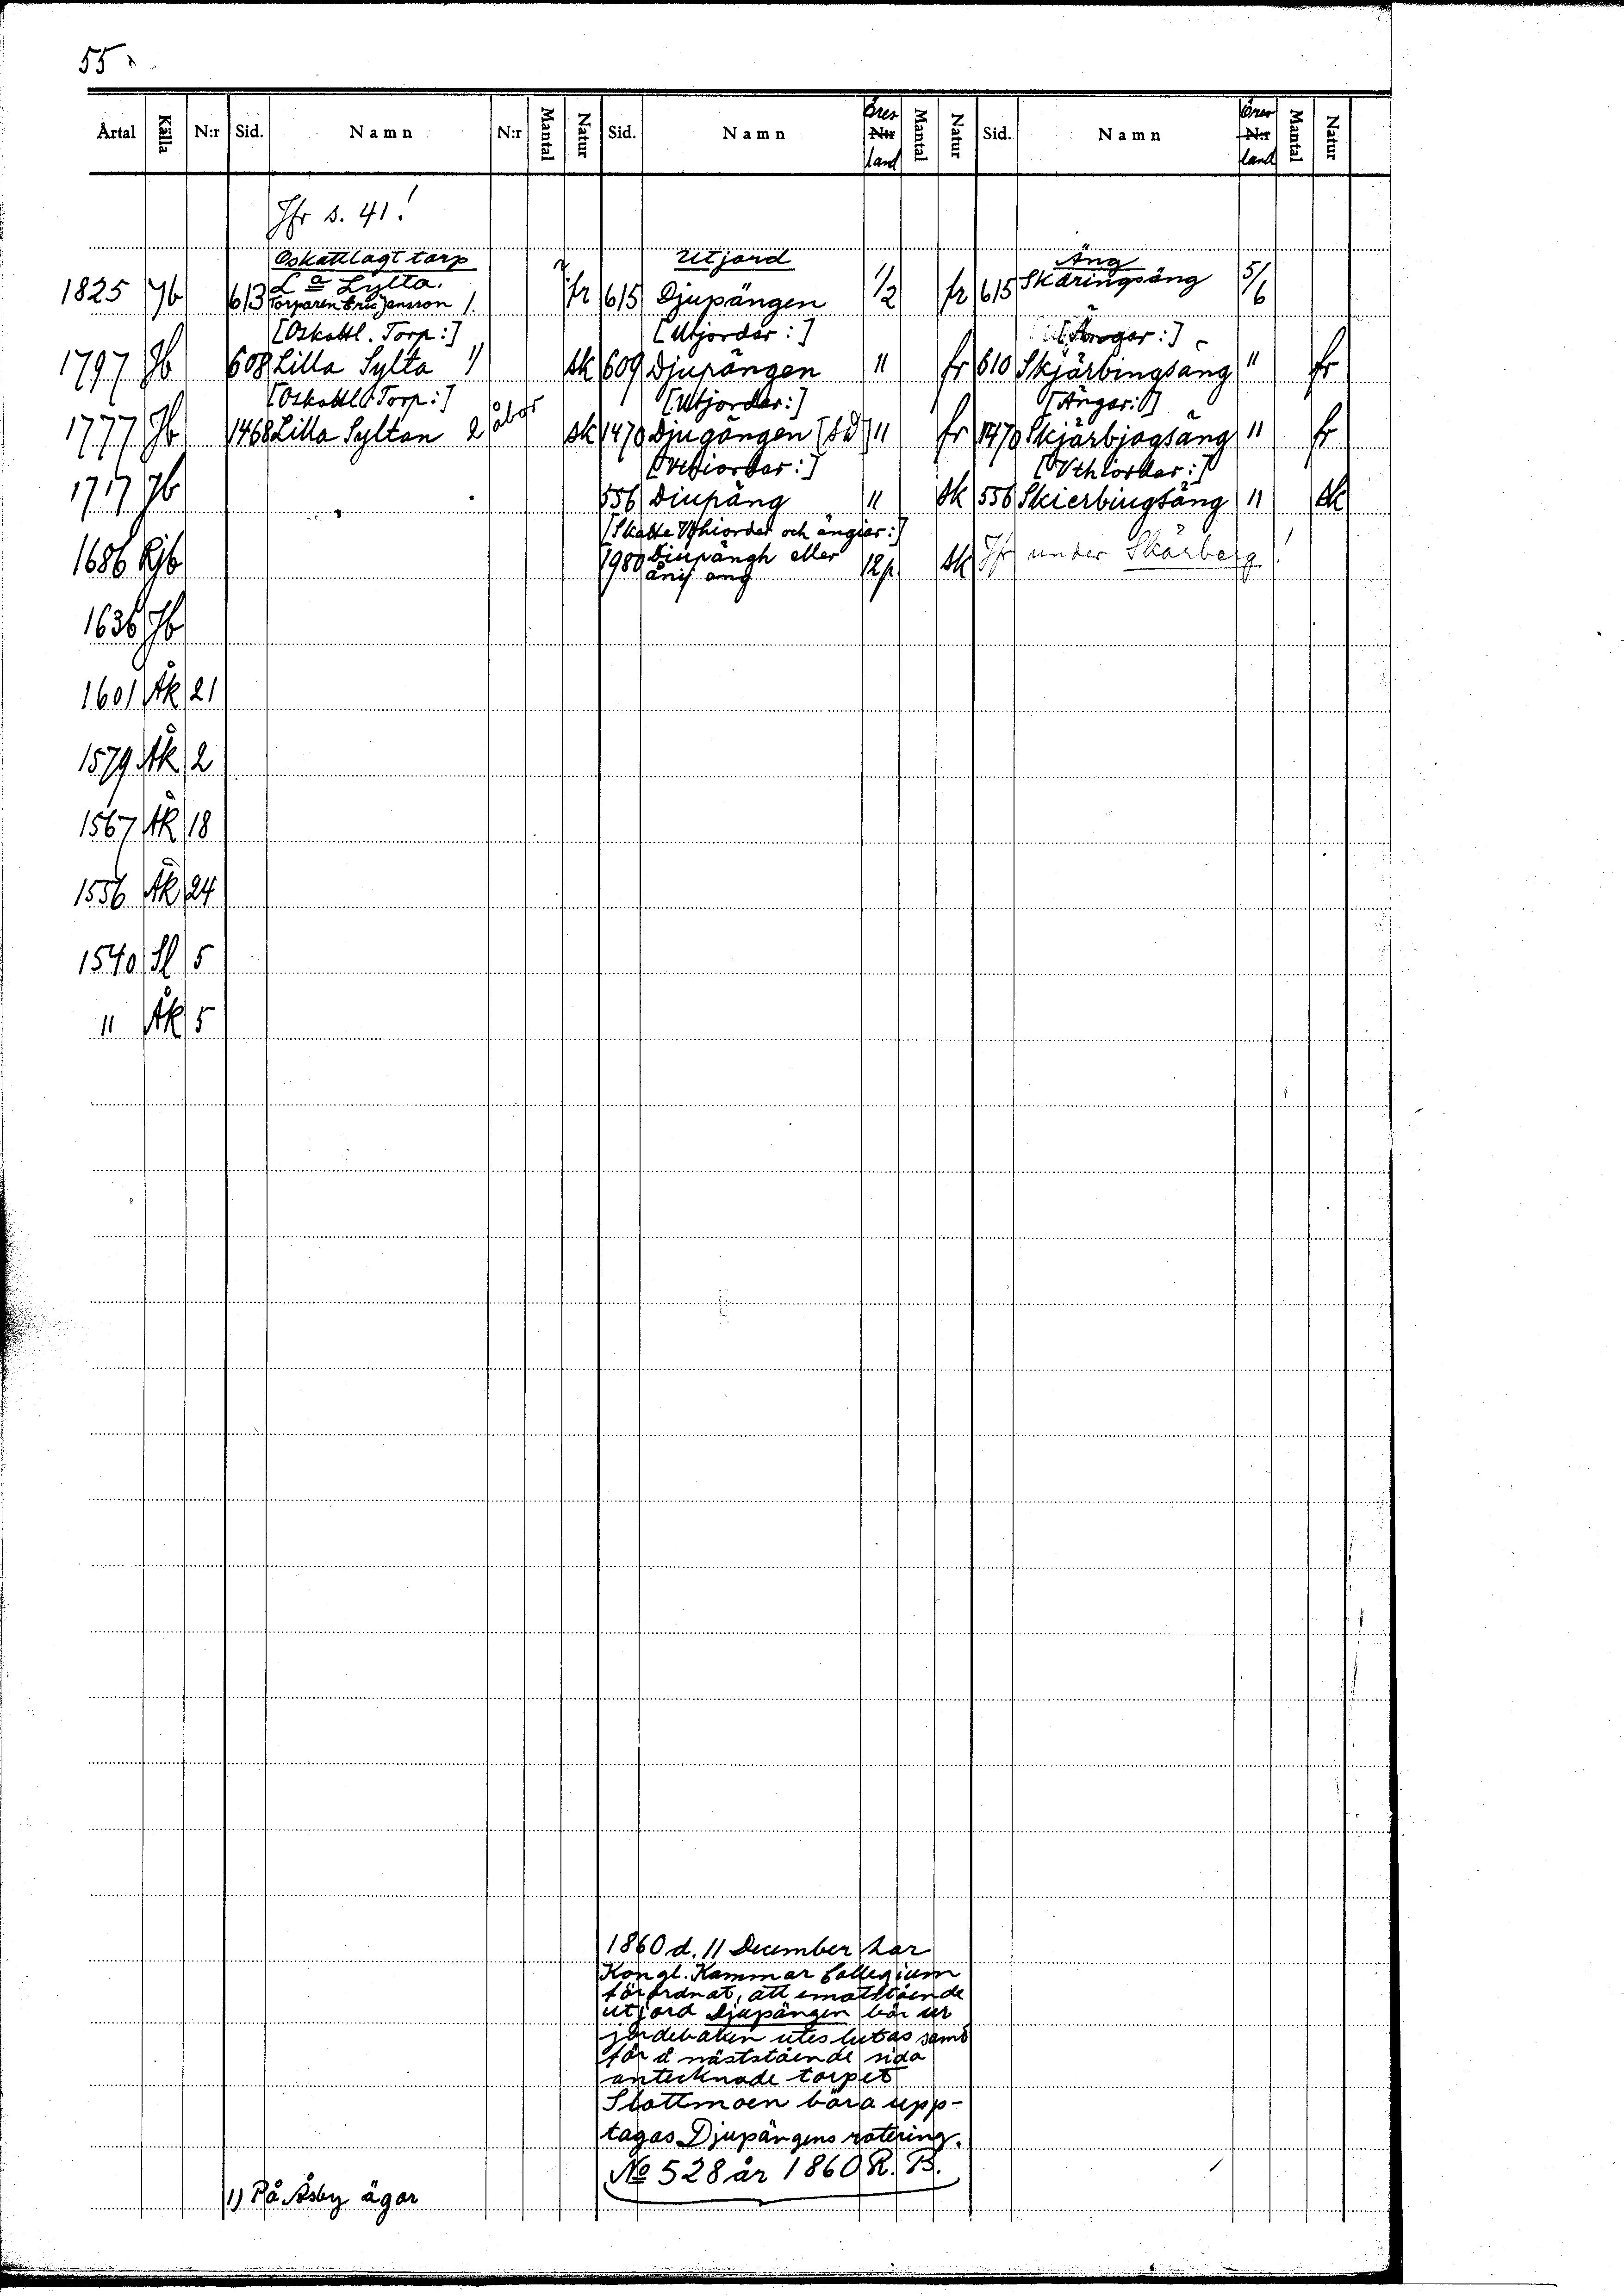 55
Årtal Källa N:r Sid. Namn N:r Mantal Natur Sid. Namn Öres N:r land Mantal Natur Sid. Namn Öres N:r land Mantal Natur
Jfr s. 41!
Oskattlagt torp Utjord Äng
1825 Jb 613 La Sylta. fr 615 Djupängen 1/2 fr 615 Skäringsäng 5/6
Torparen Eric Jansson 1.
[Oskattl. Torp:] [Utjordar:] [Ängar:]
1797 Jb 608 Lilla Sylta 1) sk 609 Djupängen " fr 610 Skjärbingsäng " fr
[Oskattl. Torp:] [Utjordar:] [Ängar:]
1777 Jb 1468 Lilla Syltan 2 åbor sk 1470 Djugängen " fr 1470 Skjärbjagsäng " fr
[Vthiordar:]
1717 Jb 556 Diupäng " sk 556 Skierbingsäng " sk
[Skatte Vthiordar och ängiar:]
1686 Kjb 1980 Diupängh eller 12p. sk Jfr under Skärberg!
äng
1636 Jb
1601 Åk 21
1579 Åk 2
1567 Åk 18
1556 Åk 24
1540 Sl 5
" Åk 5
1860 d. 11 December har
Kongl. Kammar Collegium
förordnat, att emotstående
utjord Djupängen bör ur
jordeboken uteslutas samt
för å nästståendé sida
antecknade torpet
Slottmoen böra upp-
tagas Djupängens rotering.
No 528 år 1860 R. B.
1) På Åsby ägor